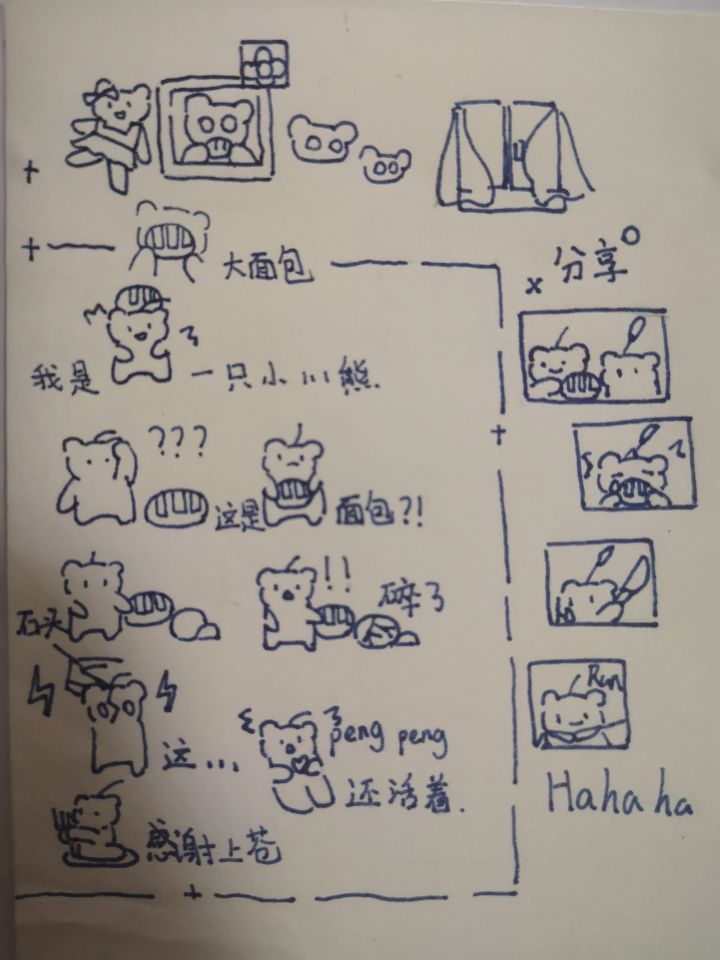 大面包
分享
我是一只小小熊.
???
这是面包?!
石头
!!
碎了
这...
peng peng
还活着.
感谢上苍
hi
Run
Hahaha